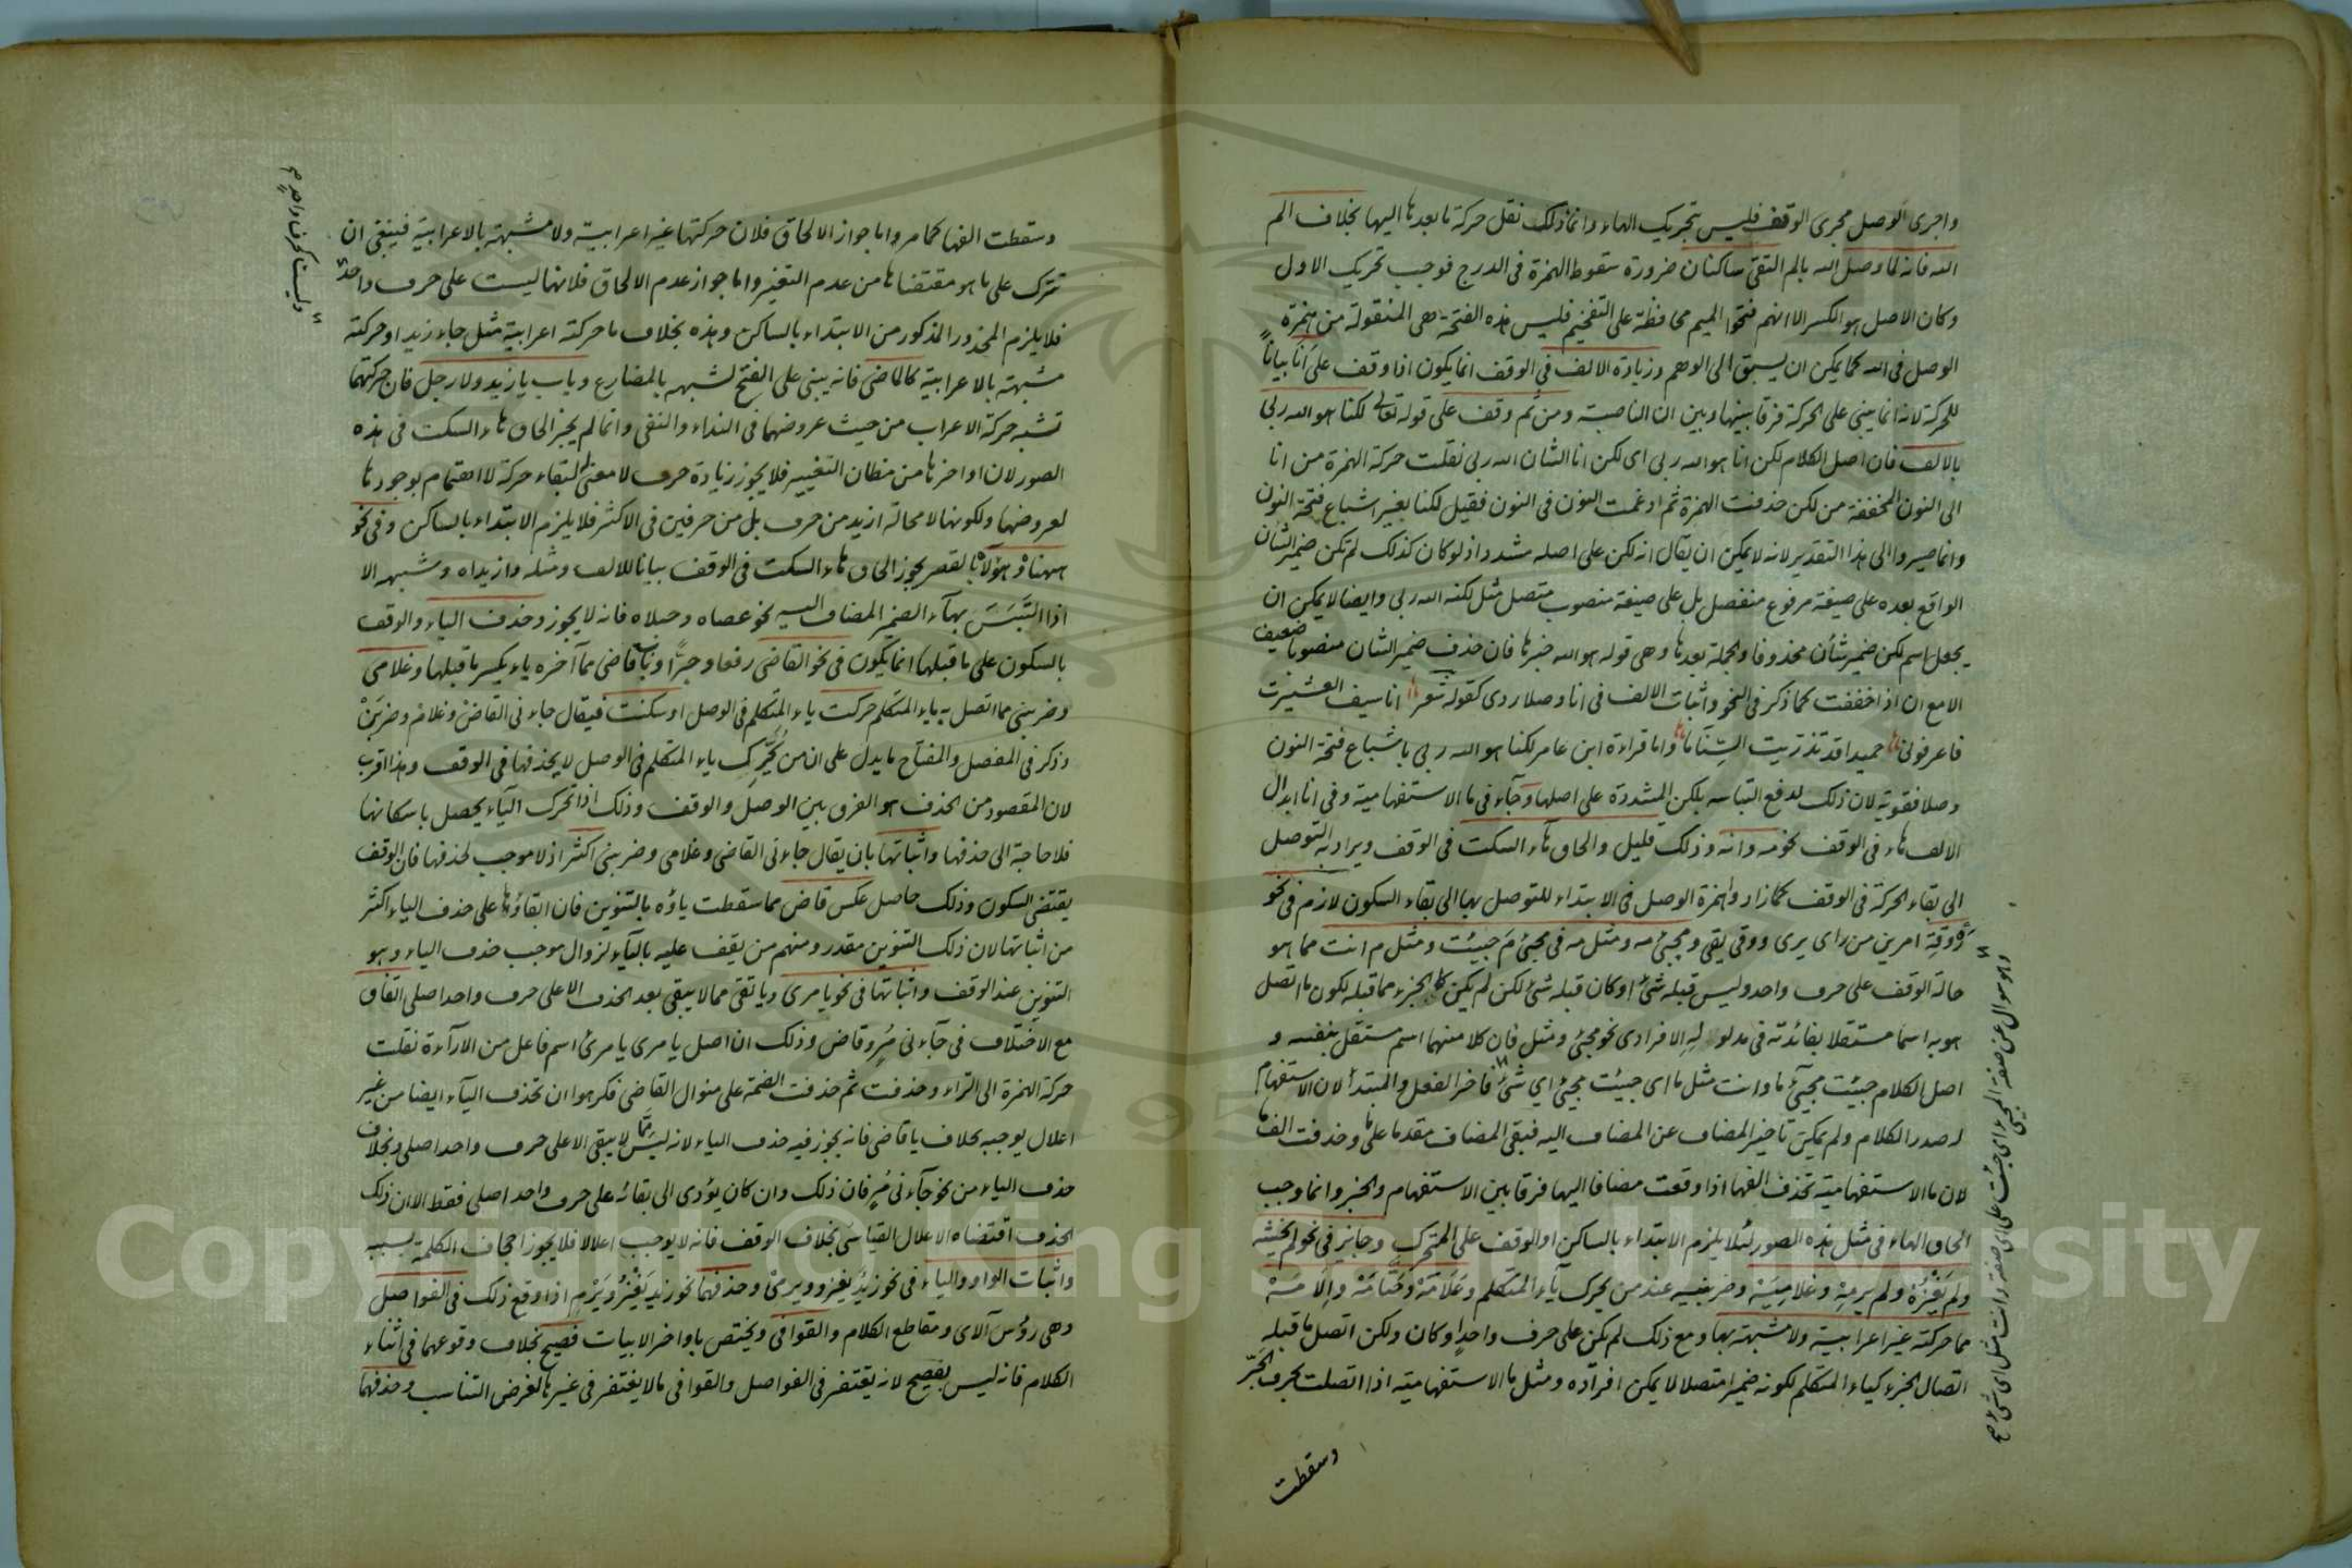 واجرى الوصل مجرى الوقف فليس بتحريك الهاء وانما ذلك نقل حركة ما بعدها اليها بخلاف الم
الله فانه لما وصل الله بالم التقى ساكنان ضرورة سقوط الهمزة فى الدرج فوجب تحريك الاول
وكان الاصل هو الكسر الا انهم فتحوا الميم محافظة على التفخيم فليس هذه الفتحة هى المنقولة من همزة
الوصل فى الله كما يمكن ان يسبق الى الوهم وزيادة الالف فى الوقف انما يكون اذا وقف على اَنَا بيانًا
للحركة لانه انما يبنى على الحركة فرقا بينها وبين ان الناصبة ومن ثم وقف على قوله تعالى لكنا هو الله ربى
بالالف فان اصل الكلام لكن انا هو الله ربى اى لكن انا الشان الله ربى نقلت حركة الهمزة من انا
الى النون المخففة من لكن حذفت الهمزة ثم ادغمت النون فى النون فقيل لكنا بغير اشباع فتحة النون
وانما صيروا الى هذا التقدير لانه لا يمكن ان يقال انه لكن على اصله مشددا اذ لو كان كذلك لم تكن ضمير الشان
الواقع بعده على صيغة مرفوع منفصل بل على صيغة منصوب متصل مثل لكنه الله ربى وايضا لا يمكن ان
يجعل اسم لكن ضمير شأن محذوفا والجملة بعدها وهى قوله هو الله خبرها فان حذف ضمير الشان منصوبا ضعيف
الا مع ان اذا خففت كما ذكر فى النحو واثبات الالف فى انا وصلا ردى كقوله شعر انا سيف العشيرة
فاعرفونى حميدا قد تذريت السناما واما قراءة ابن عامر لكنا هو الله ربى باشباع فتحة النون
وصلا فقوية لان ذلك لدفع التباسه بلكن المشددة على اصلها وجآء فى ما الاستفهامية وفى انا ابدال
الالف هاء فى الوقف نحو مه وانه وذلك قليل والحاق هآء السكت فى الوقف ويراد به التوصل
الى بقاء الحركة فى الوقف كما زاد وا همزة الوصل فى الابتداء للتوصل بها الى بقاء السكون لازم فى نحو
رَهْ وقِهْ امرين من راى يرى ووقى يقى ومجئ مه ومثل مه فى مجئ مَ جئيت ومثل م انت مما هو
حالة الوقف على حرف واحد وليس قبله شئ او كان قبله شئ لكن لم يكن كالجزء مما قبله لكون ما اتصل
هو به اسما مستقلا بفائدته فى مدلوله الافرادى نحو مجئ ومثل فان كلا منهما اسم مستقل بنفسه و
اصل الكلام جيئت مجئ ما وانت مثل ما اى جيئت مجئ اي شئ فاخر الفعل والمبتدأ لان الاستفهام
له صدر الكلام ولم يمكن تاخير المضاف عن المضاف اليه فبقى المضاف مقدما على ما وحذفت الفها
لان ما الاستفهامية تحذف الفها اذا وقعت مضافا اليها فرقا بين الاستفهام والخبر وانما وجب
الحاق الهاء فى مثل هذه الصور لئلا يلزم الابتداء بالساكن او الوقف على المتحرك وجايز فى نحو لم يخشه
ولم يَغْزُهْ ولم يرمِهْ وغلامِيَهْ وضربنيه عند من يحرك يآء المتكلم وعَلَامَهْ وحَتَّامَهْ وإلَامَهْ
مما حركته غير اعرابية ولا مشبهة بها ومع ذلك لم يكن على حرف واحد او كان ولكن اتصل بما قبله
اتصال الجزء كياء المتكلم لكونه ضميرا متصلا لا يمكن افراده ومثل ما الاستفهامية اذا اتصلت بحرف الجرّ
وسقطت
وهو سوال عن صفة المجئ اى جئت على اى صفة وانت مثل اى شئ
وسقطت الفها كما مر واما جواز الالحاق فلان حركتها غير اعرابية ولا مشبهة بالاعرابية فينبغى ان
تترك على ما هو مقتضاها من عدم التغير واما جواز عدم الالحاق فلانها ليست على حرف واحد
فلا يلزم المحذور المذكور من الابتداء بالساكن وهذه بخلاف ما حركته اعرابية مثل جاء زيد او حركته
مشبهة بالاعرابية كالماضى فانه يبنى على الفتح لشبهه بالمضارع وباب يا زيد ولا رجل فان حركتهما
تشبه حركة الاعراب من حيث عروضهما فى النداء والنفى وانما لم يجز الحاق هاء السكت فى هذه
الصور لان اواخرها من مظان التغيير فلا يجوز زيادة حرف لا معنى له لبقاء حركة لا اهتمام بوجودها
لعروضها ولكونها لا محالة ازيد من حرف بل من حرفين فى الاكثر فلا يلزم الابتداء بالساكن وفى نحو
ههناهْ وهؤلاهْ بالقصر يجوز الحاق هاء السكت فى الوقف بيانا للالف ومثله وازيداه وشبهه الا
اذا التَبَسَ بهآء الضمير المضاف اليه نحو عصاه وحبلاه فانه لا يجوز وحذف الياء والوقف
بالسكون على ما قبلها انما يكون فى نحو القاضى رفعا وجرًّا وباب قاضى مما آخره ياء يكسر ما قبلها وغلامى
وضربنى مما اتصل به ياء المتكلم حركت ياء المتكلم فى الوصل او سكنت فيقال جاءنى القاضْ وغلامْ وضربَنْ
وذكر فى المفصل والمفتاح ما يدل على ان من يُحَرِّك ياء المتكلم فى الوصل لا يحذفها فى الوقف وهذا اقرب
لان المقصود من الحذف هو الفرق بين الوصل والوقف وذلك اذا تحرك اليآء يحصل باسكانها
فلا حاجة الى حذفها واثباتها بان يقال جاءنى القاضى وغلامى وضربنى اكثر اذ لا موجب لحذفها فان الوقف
يقتضى السكون وذلك حاصل عكس قاض مما سقطت ياؤه بالتنوين فان ابقاؤها على حذف الياء اكثر
من اثباتها لان ذلك التنوين مقدر ومنهم من يقف عليه باليآء لزوال موجب حذف الياء وهو
التنوين عند الوقف واثباتها فى نحو يا مرى ويا تقى مما لا يبقى بعد الحذف الا على حرف واحد اصلى اتفاق
مع الاختلاف فى جآءنى مُرٍ وقاض وذلك ان اصل يا مرى يا مرئ اسم فاعل من الارآءة نقلت
حركة الهمزة الى الراء وحذفت ثم حذفت الضمة على منوال القاضى فكرهوا ان تحذف اليآء ايضا من غير
اعلال يوجبه بخلاف يا قاضى فانه يجوز فيه حذف الياء لانه ليس مما لا يبقى الا على حرف واحد اصلى وبخلاف
حذف الياء من نحو جآءنى مُرٍ فان ذلك وان كان يؤدى الى بقائه على حرف واحد اصلى فقط الا ان ذلك
الحذف اقتضاه الاعلال القياسى بخلاف الوقف فانه لا يوجب اعلالا فلا يجوز اجحاف الكلمة بسببه
واثبات الواو والياء فى نحو زيد يغزو ويرمى وحذفهما نحو زيد يَغْزُ ويَرْمِ اذا وقع ذلك فى الفواصل
وهى رؤس الآى ومقاطع الكلام والقوافى ويختص باواخر الابيات فصيح بخلاف وقوعهما فى اثناء
الكلام فانه ليس بفصيح لانه يغتفر فى الفواصل والقوافى ما لا يغتفر فى غيرها لغرض التناسب وحذفهما
وليست كحرف واحد
Copyright © King Saud University